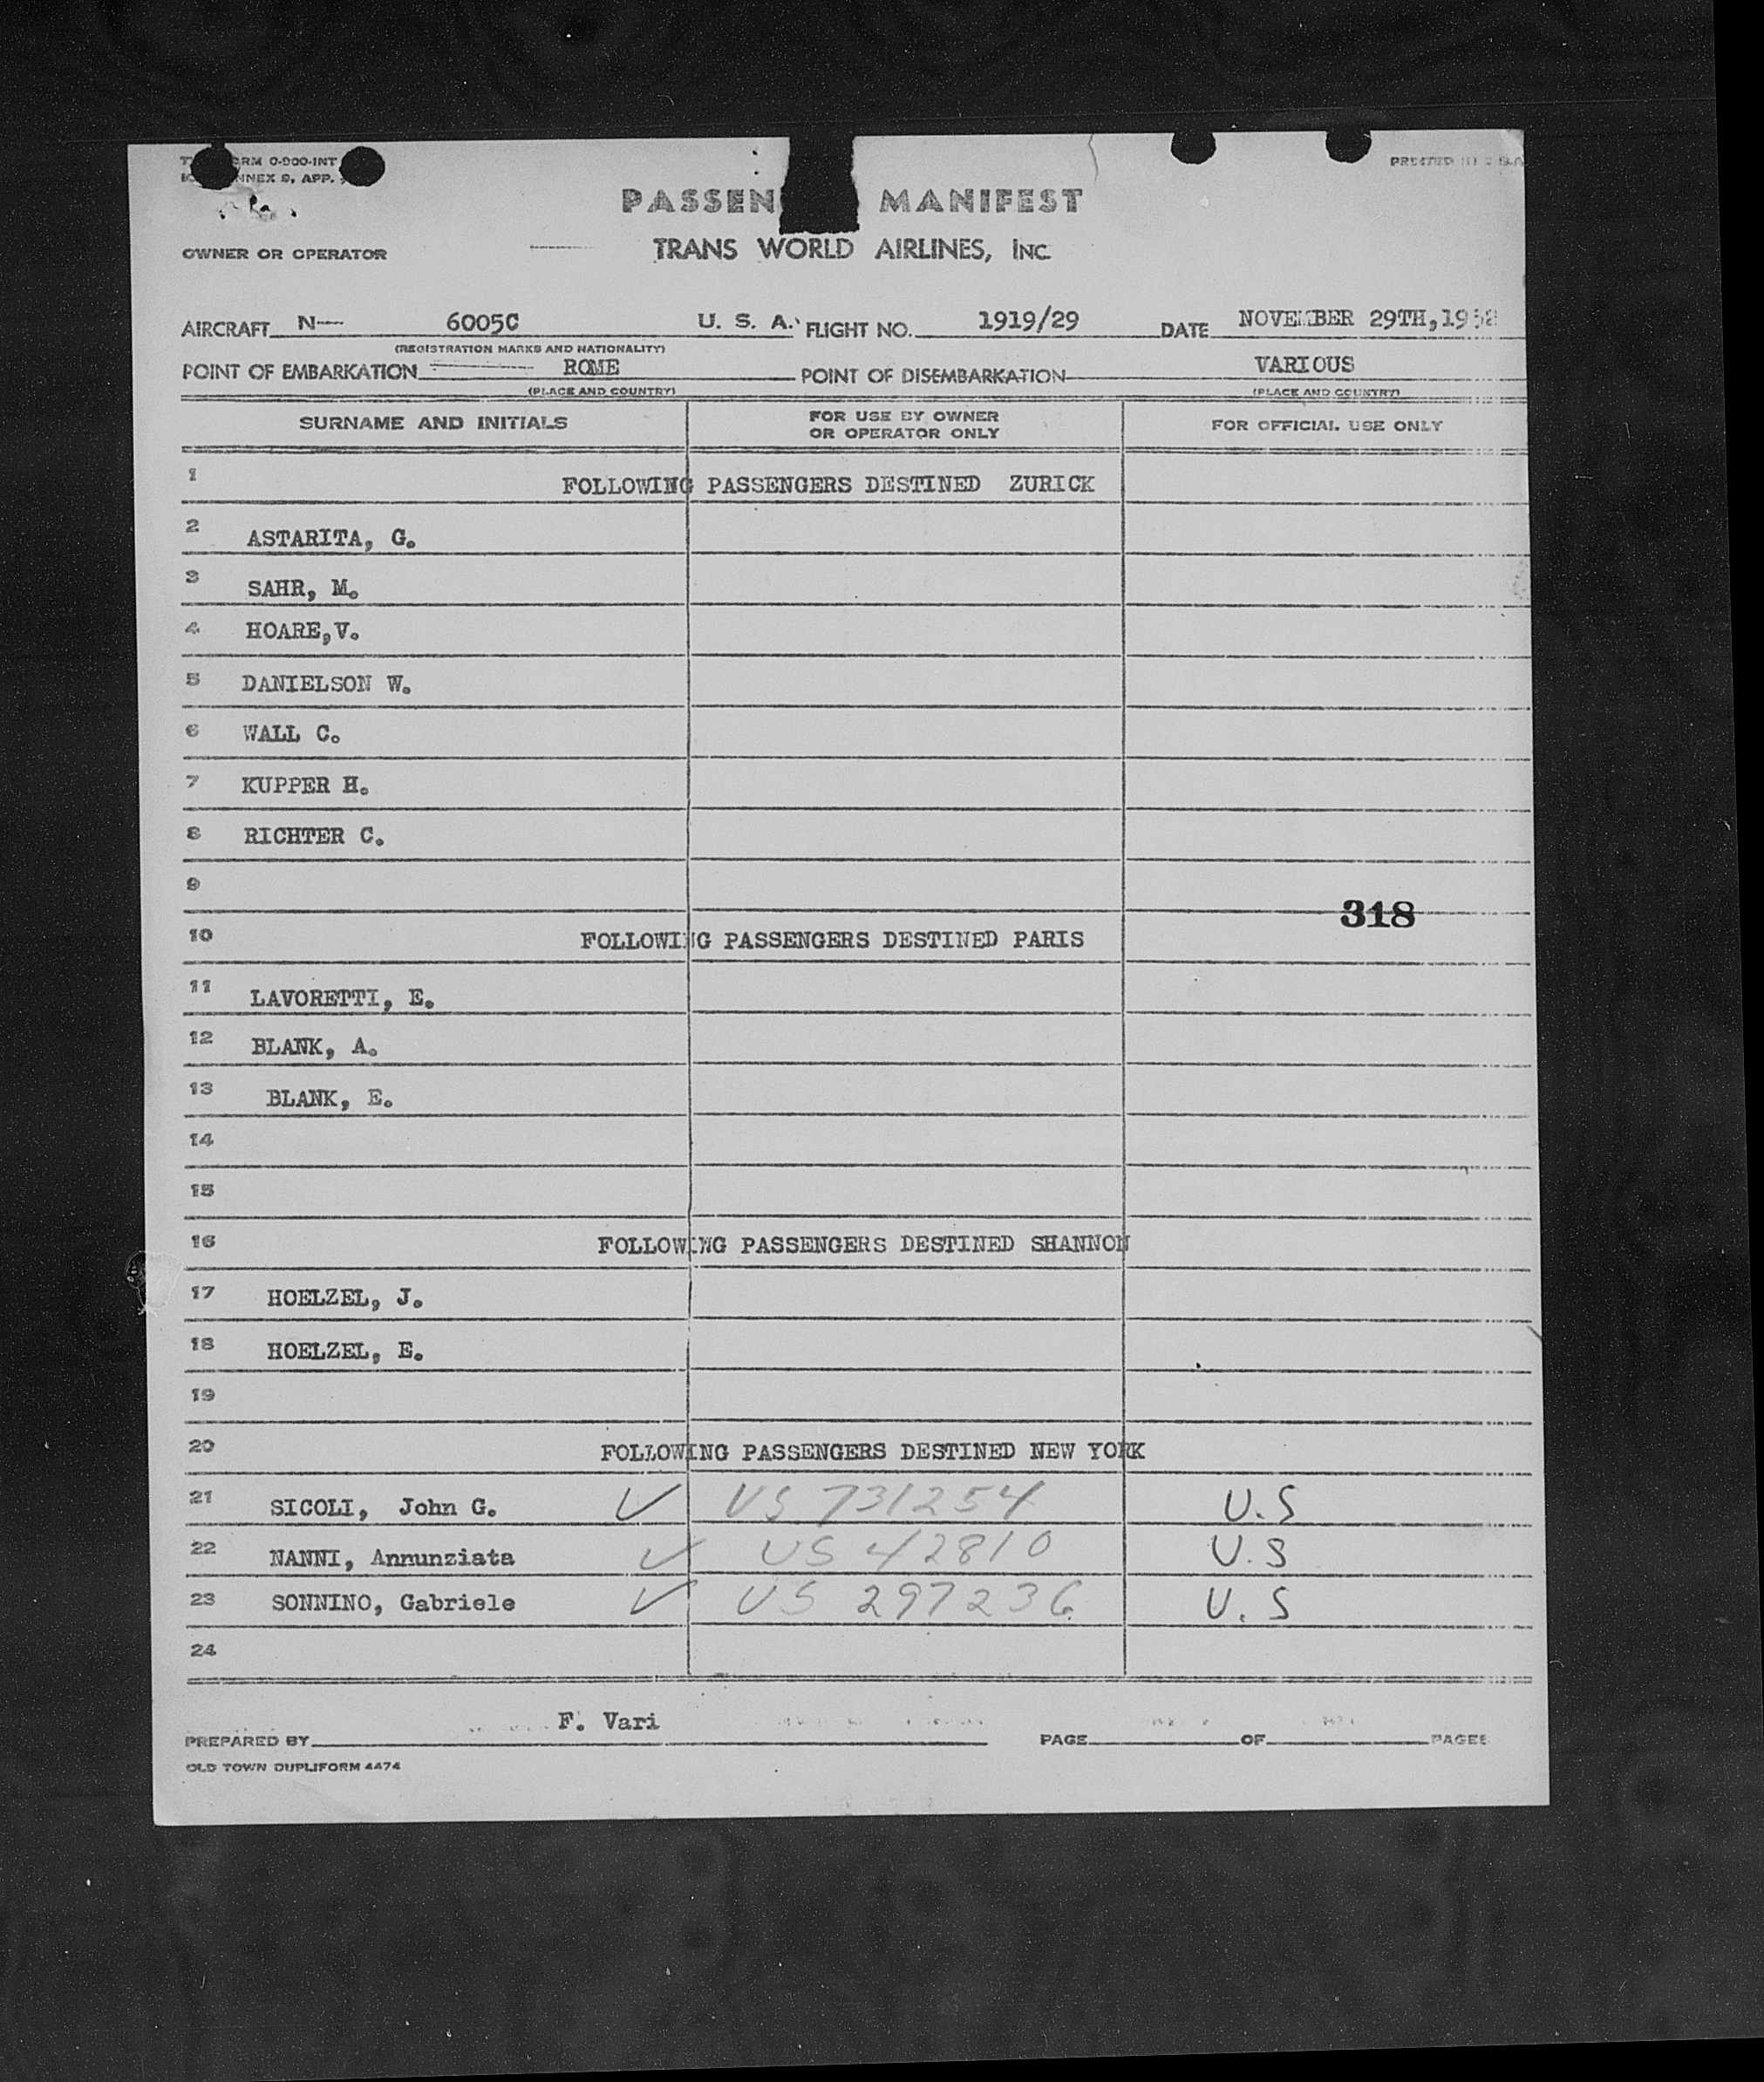 RM 0-900-INT
NNEX 9, APP.
PRINTED IN U.S.A.
PASSEN MANIFEST
OWNER OR OPERATOR TRANS WORLD AIRLINES, INC
AIRCRAFT N— 6005C U. S. A. FLIGHT NO. 1919/29 DATE NOVEMBER 29TH,1952
(REGISTRATION MARKS AND NATIONALITY)
POINT OF EMBARKATION ROME POINT OF DISEMBARKATION VARIOUS
(PLACE AND COUNTRY) (PLACE AND COUNTRY)
SURNAME AND INITIALS FOR USE BY OWNER OR OPERATOR ONLY FOR OFFICIAL USE ONLY
1 FOLLOWING PASSENGERS DESTINED ZURICK
2 ASTARITA, G.
3 SAHR, M.
4 HOARE,V.
5 DANIELSON W.
6 WALL C.
7 KUPPER H.
8 RICHTER C.
9
318
10 FOLLOWING PASSENGERS DESTINED PARIS
11 LAVORETTI, E.
12 BLANK, A.
13 BLANK, E.
14
15
16 FOLLOWING PASSENGERS DESTINED SHANNON
17 HOELZEL, J.
18 HOELZEL, E.
19
20 FOLLOWING PASSENGERS DESTINED NEW YORK
21 SICOLI, John G. ✓ US 731254 U.S
22 NANNI, Annunziata ✓ US 42810 U.S
23 SONNINO, Gabriele ✓ US 297236 U.S
24
PREPARED BY F. Vari PAGE OF PAGES
OLD TOWN DUPLIFORM 4474